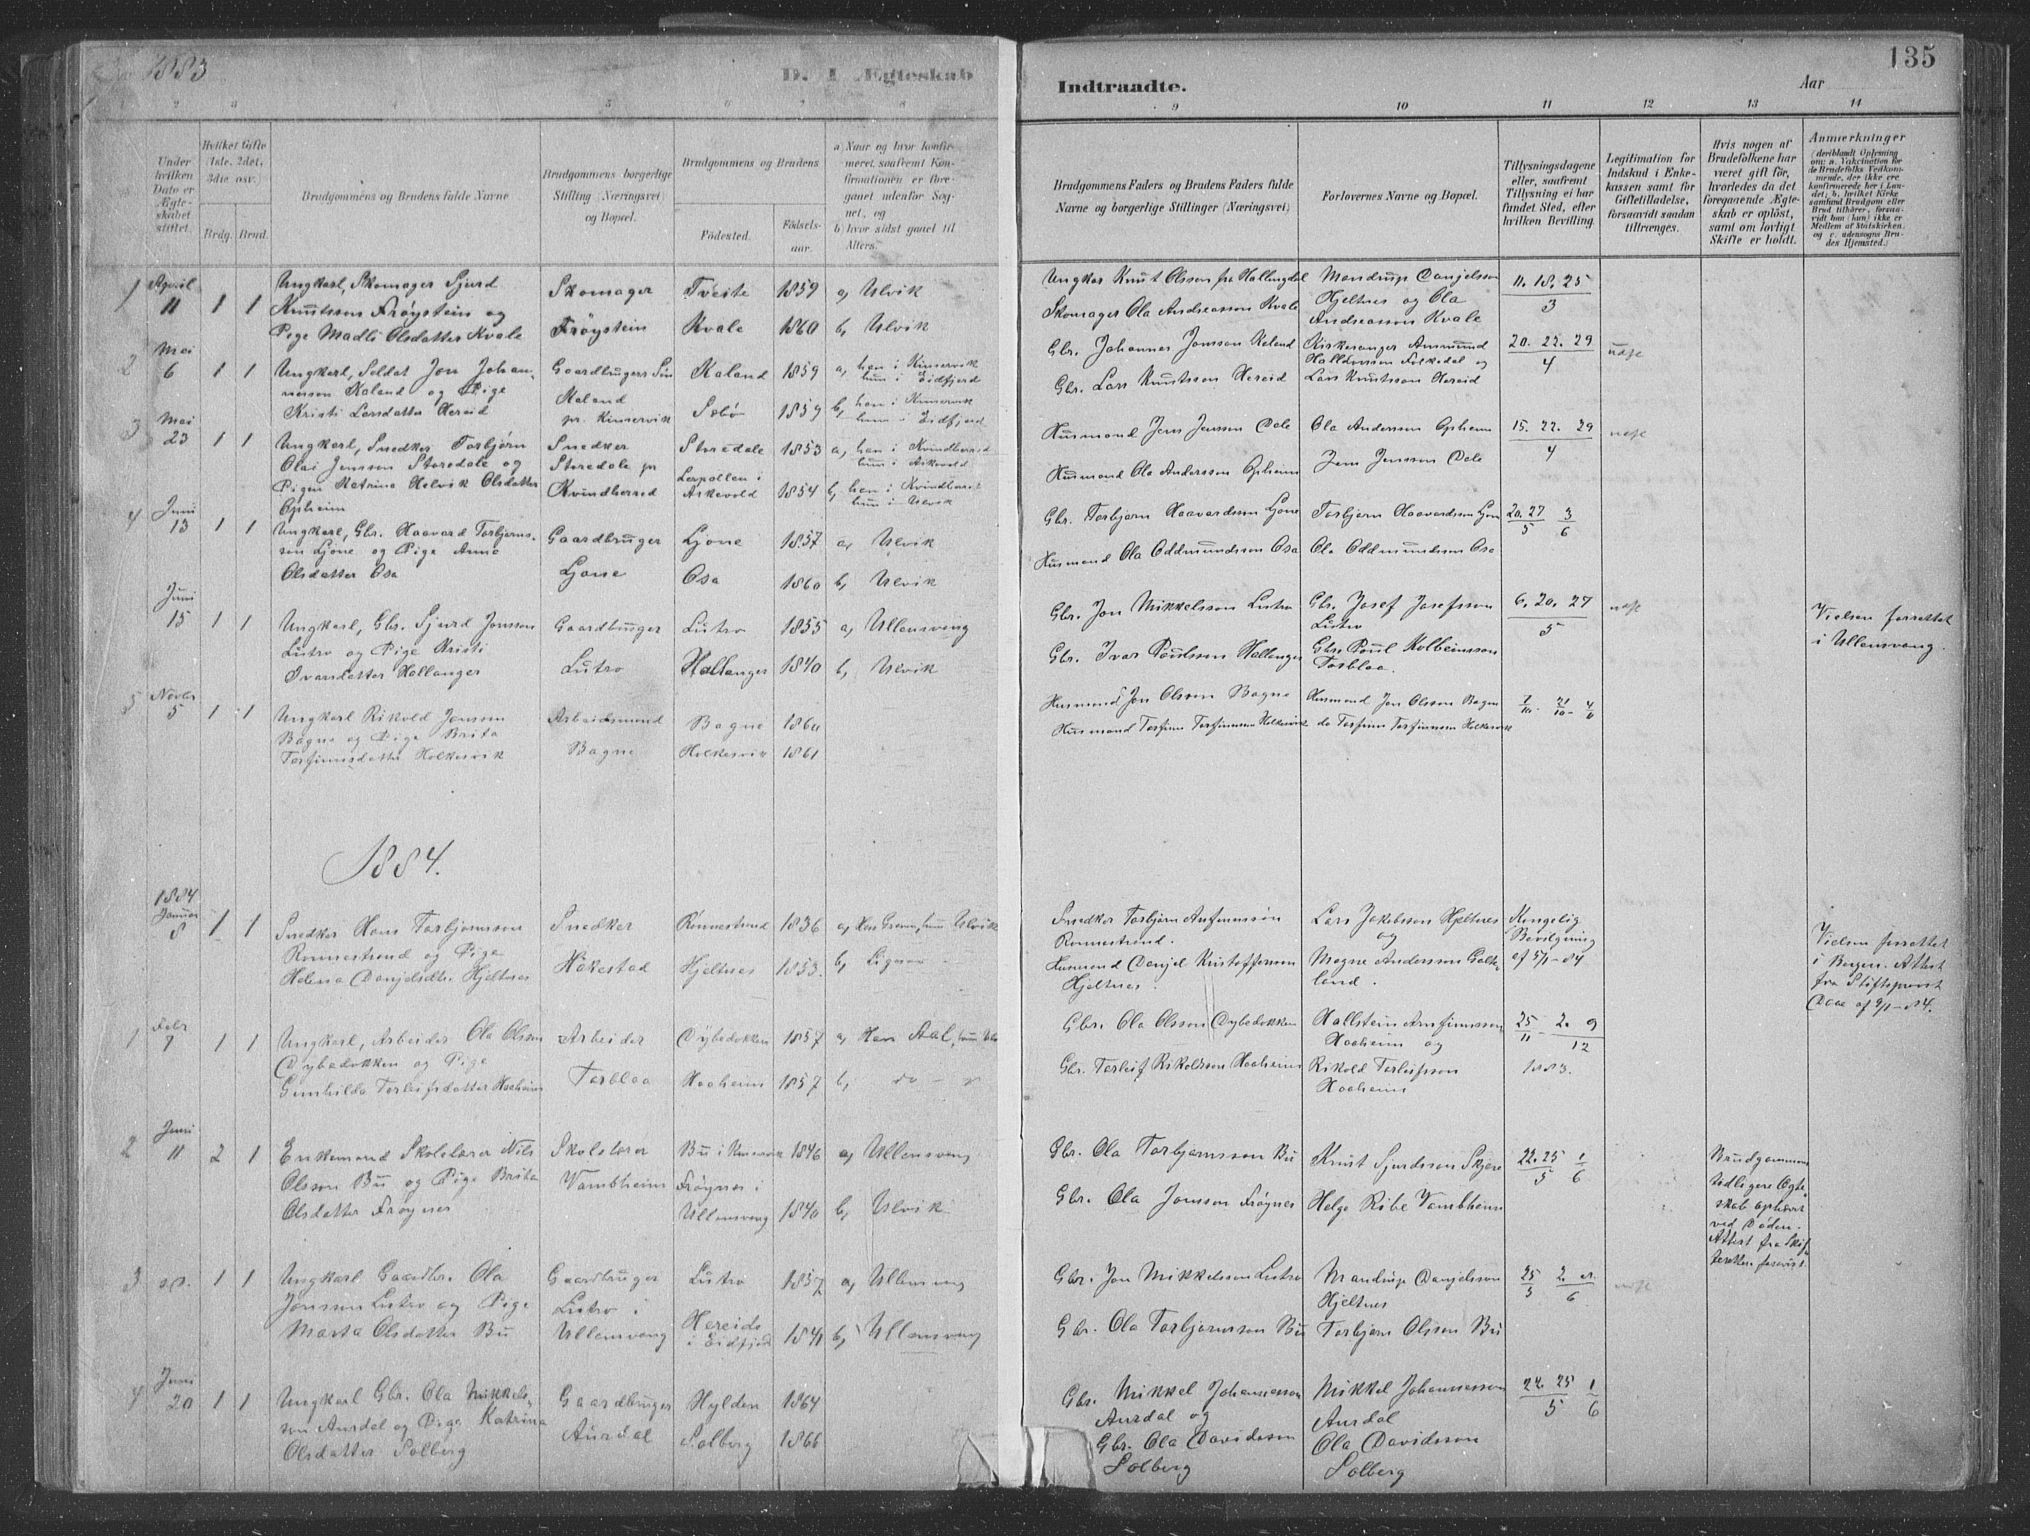 Aar 1883
D. I Ægteskab
Indtraadte.
Aar
135
2 3 4 5 6 7 8 9 10 11 12 13 14
Under hvilken Dato er Ægteskabet stiftet.
Hvilket Gifte (1ste, 2det, 3die osv.)
Brdg. Brud.
Brudgommens og Brudens fulde Navne
Brudgommens borgerlige Stilling (Næringsvei) og Bopæl.
Brudgommens og Brudens
Fødested.
Fødselsaar.
a) Naar og hvor konfirmeret, saafremt Konfirmationen er foregaaet udenfor Sognet, og
b) hvor sidst gaaet til Alters.
Brudgommens Faders og Brudens Faders fulde Navne og borgerlige Stillinger (Næringsvei)
Forlovernes Navne og Bopæl.
Tillysningsdagene eller, saafremt Tillysning ei har fundet Sted, efter hvilken Bevilling.
Legitimation for Indskud i Enkekassen samt for Giftetilladelse, forsaavidt saadan tiltrænges.
Hvis nogen af Brudefolkene har været gift før, hvorledes da det foregaaende Ægteskab er opløst, samt om lovligt Skifte er holdt.
Anmerkninger (deriblandt Oplysning om: a. Vakcination for Brudefolks Vedkommende, der ikke ere konfirmerede her i Landet; b. hvilket Kirkesamfund Brudgom eller Brud tilhører, forsaavidt han (hun) ikke er Medlem af Statskirken, og c. udensogns Brudes Hjemsted.)
1 April 11 1 1 Ungkarl, Skomager Sjurd
Knutsson Frøystein og
Pige Madli Olsdatter Kvale
Skomager
Frøystein
Tveite 1859 a, Ulvik
Kvale 1860 b, Ulvik
Ungkar Knut Olsson fra Hallingdal
Skomager Ola Andreasson Kvale
Mandrup Danjelsson
Hjeltnes og Ola
Andreasson Kvale
11. 18. 25
3
2 Mai 6 1 1 Ungkarl, Soldat Jon Johan-
nesson Kaland og Pige
Kristi Larsdatter Hereid
Gaardbrugers Søn
Kaland
pr. Kinservik
Kaland 1859 a, han i Kinservik
hun i Eidfjord
Sæbø 1859 b, han i Kinservik
hun i Eidfjord
Gbr. Johannes Jonsson Kaland
Gbr. Lars Knutsson Hereid
Kirkesanger Amund
Halldorsson Folkedal og
Lars Knutsson Hereid
20. 22. 29
4
3 Mai 23 1 1 Ungkarl, Snedker Torbjørn
Olai Jensson Storedale og
Pigen Katrina Helvik Olsdatter
Opheim
Snedker
Storedale pr
Kvindherred
Storedale 1853 a, han i Kvindherred
hun i Askevold
Lerpollen i
Askevold 1854 b, han i Kvindherred
hun i Ulvik
Husmand Jens Jensson Dale
Husmand Ola Andersson Opheim
Ola Andersson Opheim
Jens Jensson Dale
15. 22. 29
4
4 Juni 13 1 1 Ungkarl, Gbr. Haavard Torbjørns-
son Ljone og Pige Anna
Olsdatter Osa
Gaardbruger
Ljone
Ljone 1857 a, Ulvik
Osa 1860 b, Ulvik
Gbr. Torbjørn Haavardsson Ljone
Husmand Ola Oddmundsson Osa
Torbjørn Haavardsson Ljone
Ola Oddmundsson Osa
20. 27 3
5 6
Juni 15 1 1 Ungkarl, Gbr. Sjurd Jonsson
Lutro og Pige Kristi
Ivarsdatter Hallanger
Gaardbruger
Lutro
Lutro 1855 a, Ullensvang
Hallanger 1840 b, Ulvik
Gbr. Jon Mikkelsson Lutro
Gbr. Ivar Poulsson Hallanger
Gbr. Josef Josefsson
Lutro
Gbr. Poul Kolbeinsson
Torblaa
6. 20. 27
5
Vielsen forrettet
i Ullensvang.
5 Novbr 5 1 1 Ungkarl Rikold Jonsson
Bagne og Pige Brita
Torfinnsdatter Holkesvik
Arbeidsmand
Bagne
Bagne 1860
Holkesvik 1861
Husmand Jon Olsson Bagne
Husmand Torfinn Torfinnsson Holkesvik
Husmand Jon Olsson Bagne
do Torfinn Torfinnsson Holkesvik
1884.
1884 Januar 8 1 1 Snedker Hans Torbjørnsson
Ronnestrand og Pige
Helena Danjelsdtr. Hjeltnes
Snedker
Håkestad
Rønnestrand 1836
Hjeltnes 1853.
Snedker Torbjørn Anfinnssøn
Ronnestrand.
Husmand Danjel Kristoffersson
Hjeltnes.
Lars Jakobsson Hjeltnes
og
Magne Andersson
land.
Kongelig
Bevilgning
af 5/1-84
Vielsen forrettet
i Bergen. Attest
fra Stiftsprovst
Daae af 9/1-84.
1 Febr 7 1 1 Ungkarl, Arbeider Ola Olsson
Dybedokken og Pige
Gunhilda Torleifsdatter Haaheim
Arbeider
Torblaa
Dybedokken 1857 a, Han Aal, hun
Haaheim 1857 b, do
Gbr. Ola Olsson Dybedokken
Gbr. Torleif Rikoldsson Haaheim
Hallstein Arnfinnsson
Haaheim og
Rikold Torleifsson
Haaheim
25 - 2. 9
11 12
1883.
2 Juni 11 2 1 Enkemand Skolelærer Nils
Olsson Bu og Pige Brita
Olsdatter Frøynes
Skolelærer
Vambheim
Bu i Kinservik 1846 a, Ullensvang
Frøynes i
Ullensvang 1840 b, Ulvik
Gbr. Ola Torbjørnsson Bu
Gbr. Ola Jonsson Frøynes
Knut Sjurdsson Skjere
Helge Ribe Vambheim
22. 25 1
5 6
Brudgommens
tidligere Ægte-
skab ophævet
ved Døden.
Attest fra Skif-
teretten forevist.
3 s.d. 1 1 Ungkarl Gaardbr. Ola
Jonsson Lutro og Pige
Marta Olsdatter Bu
Gaardbruger
Lutro i
Ullensvang
Lutro 1857 a, Ullensvang
Hereid
i Eidfjord 1841 b, Ullensvang
Gbr. Jon Mikkelsson Lutro
Gbr. Ola Torbjørnsson Bu
Mandrup Danjelsson
Hjeltnes
Torbjørn Olsson Bu
4 Juni 20 1 1 Ungkarl Gbr. Ola Mikkels-
son Aurdal og Pige Katrina
Olsdatter Solberg
Gaardbruger
Aurdal
Hylden 1864
Solberg 1866
Gbr. Mikkel Johannesson
Aurdal og
Gbr. Ola Davidsson
Solberg
Mikkel Johannesson
Aurdal
Ola Davidsson
Solberg
22. 25 1
5 6